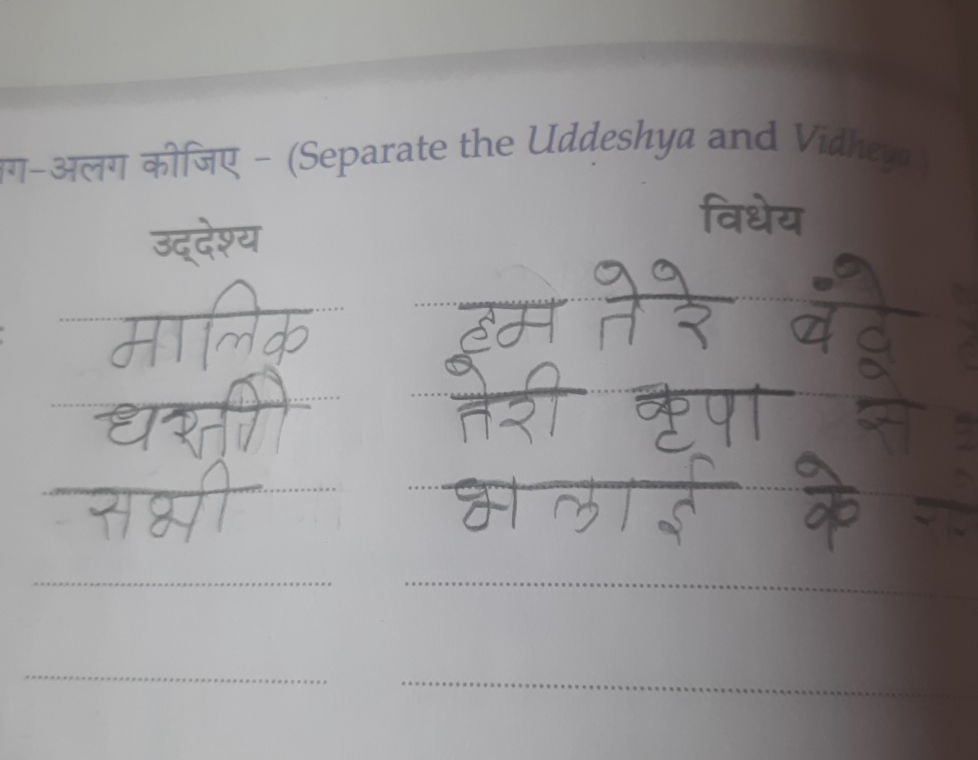 ग-अलग कीजिए - (Separate the Uddeshya and Vidheya)
उद्देश्य विधेय
मालिक हम तेरे बंदे
धरती तेरी कृपा से
सभी भलाई के